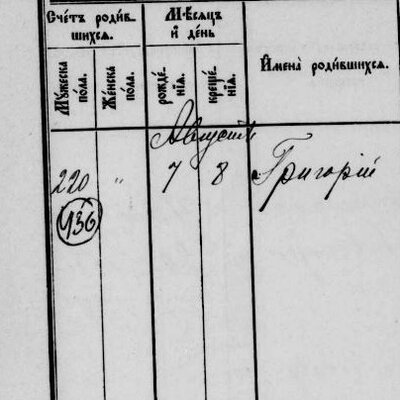 Счетъ родив-
шихся.
Мѣсяцъ
и день
Имена родившихся.
Мужеска
пола.
Женска
пола.
рожде-
нія.
креще-
нія.
Августъ
220 " 7 8 Григорій
436